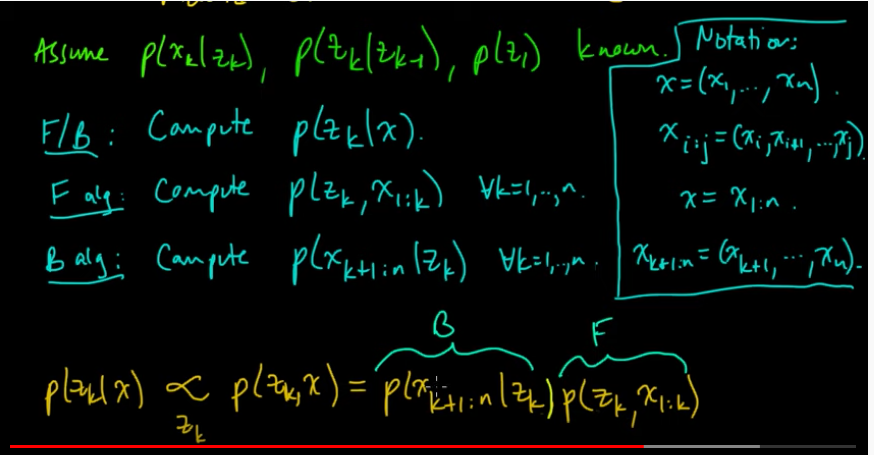 Assume p(x_k|z_k), p(z_k|z_{k-1}), p(z_1) known.
F/B: Compute p(z_k|x).
F alg: Compute p(z_k, x_{1:k}) ∀k=1,..,n.
B alg: Compute p(x_{k+1:n}|z_k) ∀k=1,..,n.
Notation:
x=(x_1,...,x_n).
x_{i:j}=(x_i,x_{i+1},...,x_j)
x=x_{1:n}.
x_{k+1:n}=(x_{k+1},...,x_n).
B F
p(z_k|x) ∝_{z_k} p(z_k,x) = p(x_{k+1:n}|z_k) p(z_k,x_{1:k})